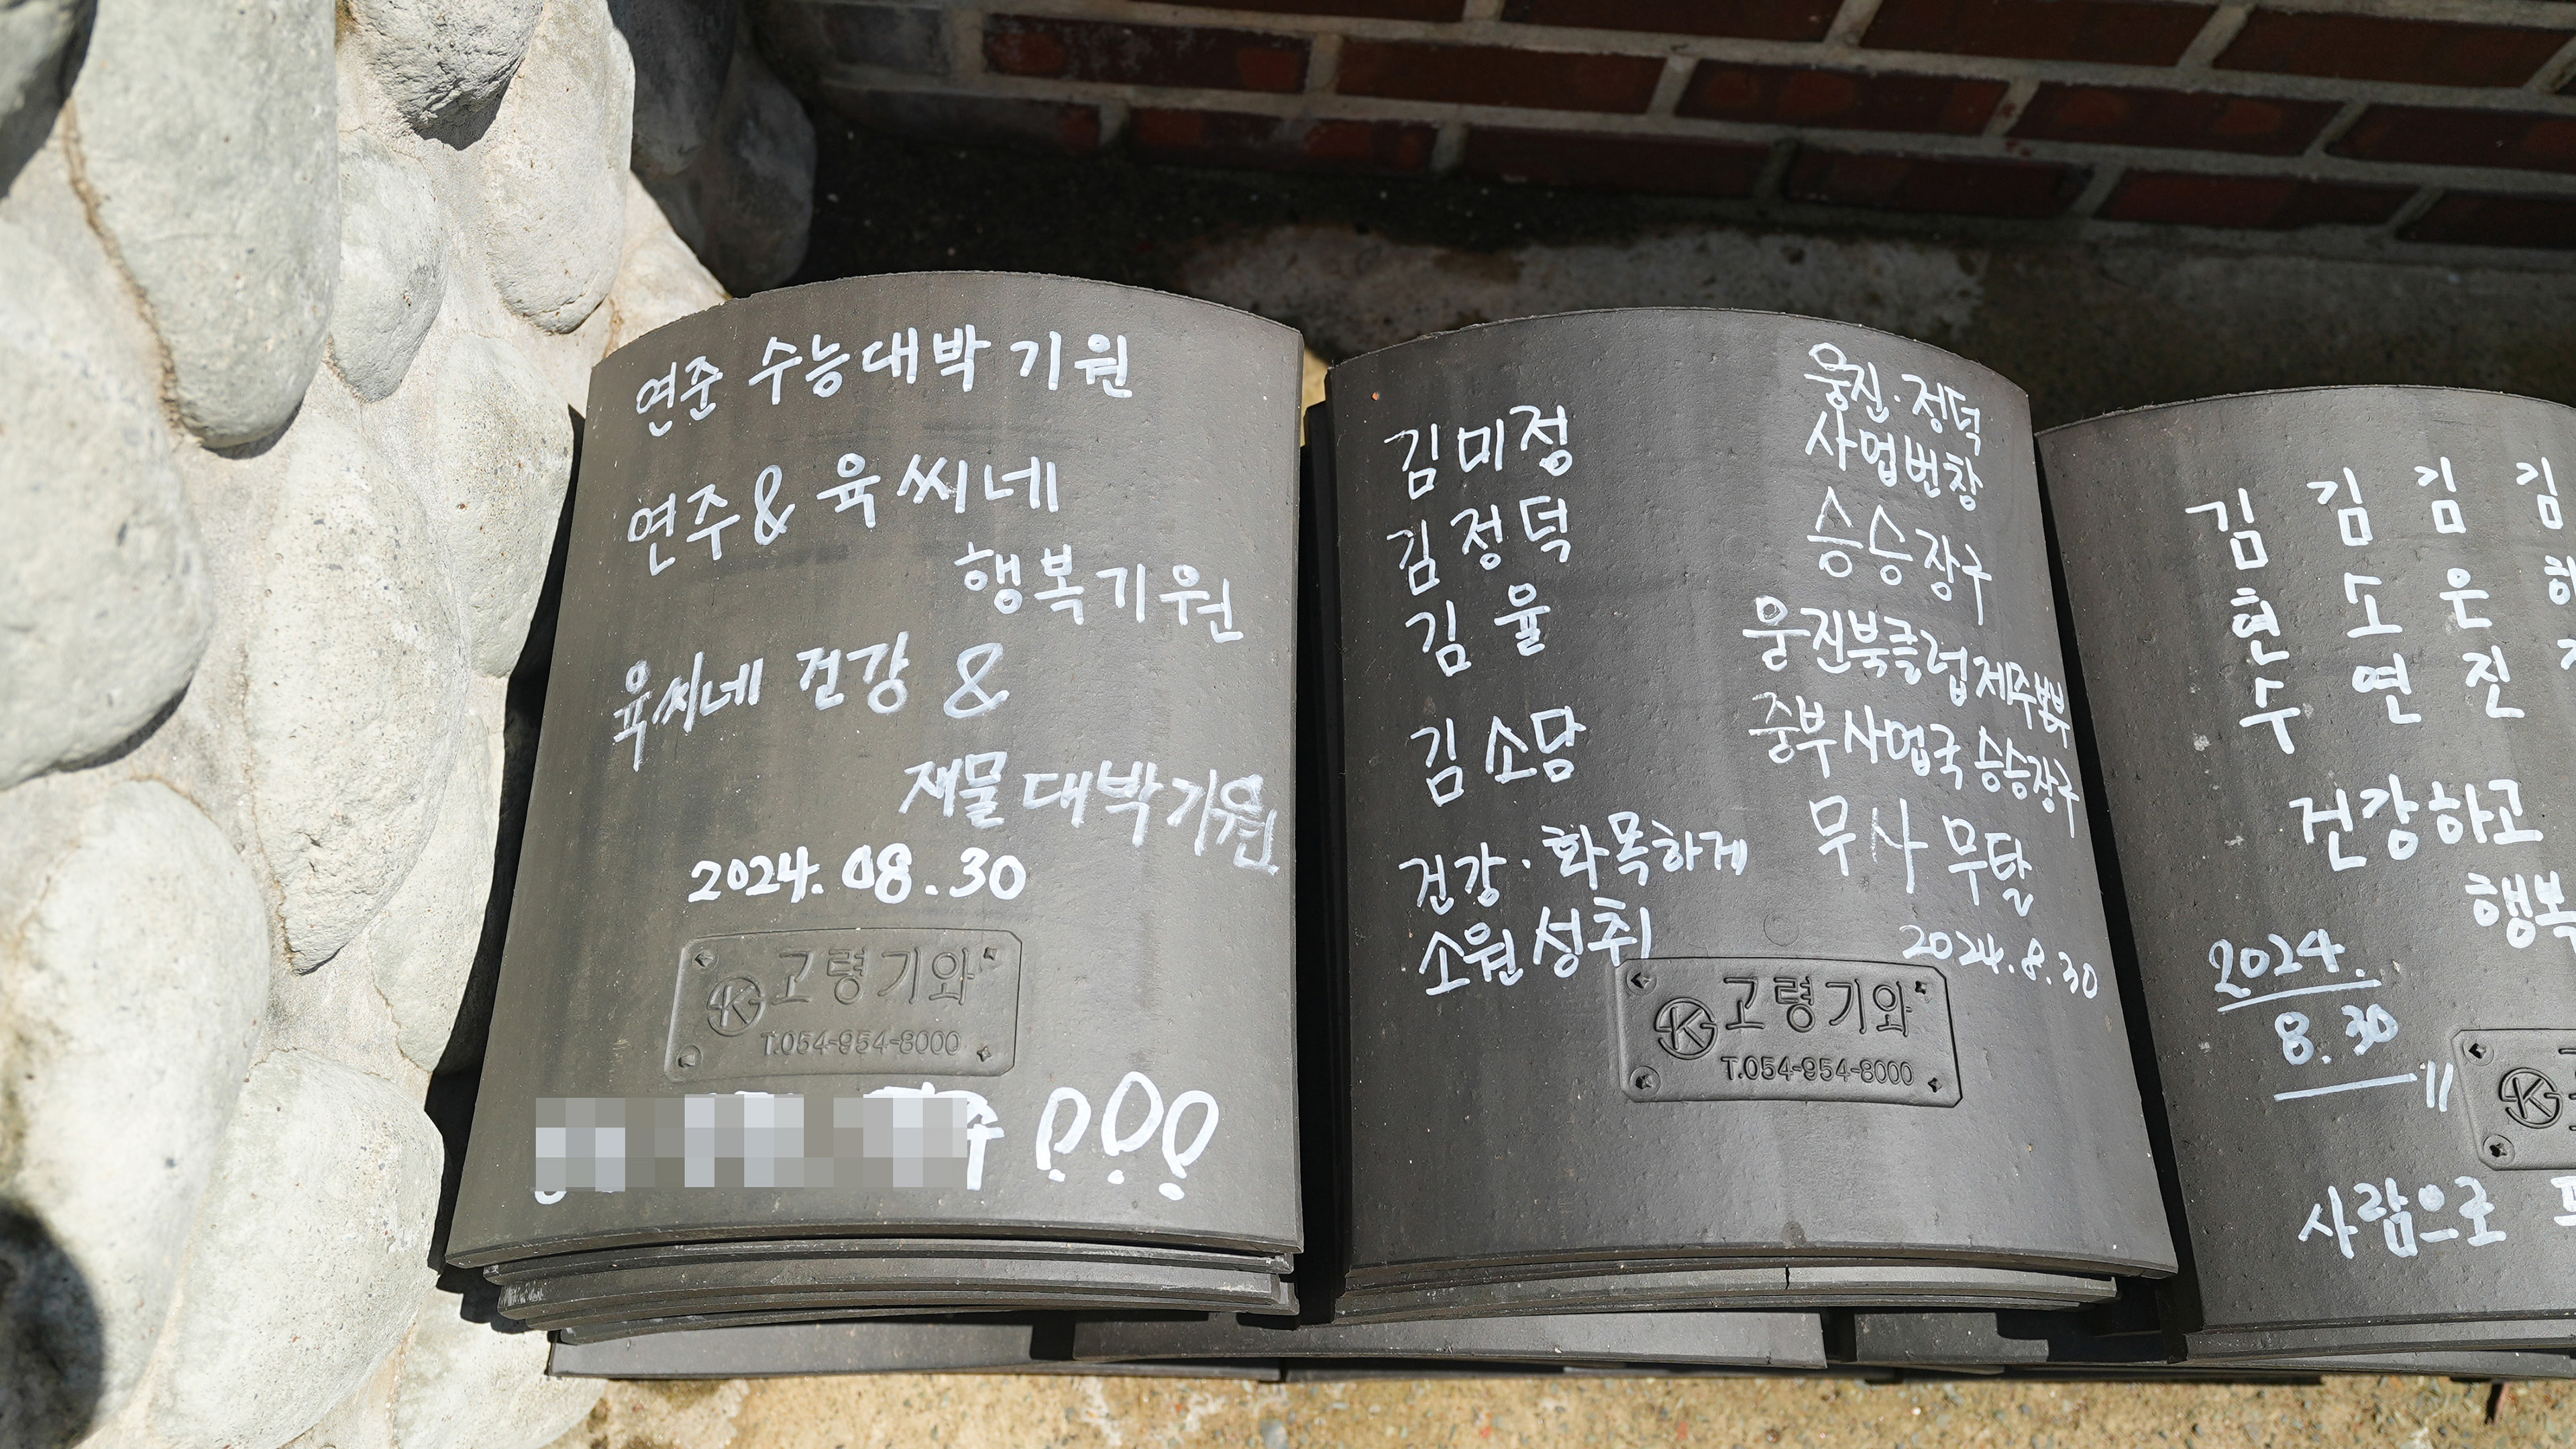 연준 수능대박 기원
연주 & 육씨네
행복기원
육씨네 건강 &
재물 대박기원
2024. 08. 30
고령기와
T.054-954-8000
김미정
김정덕
김율
김소담
건강·화목하게
소원성취
웅진·정덕
사업번창
승승장구
웅진북클럽제주본부
중부사업국 승승장구
무사 무탈
2024.8.30
고령기와
T.054-954-8000
김현수
김소연
김은진
김
건강하고
행복
2024.
8.30
사람으로